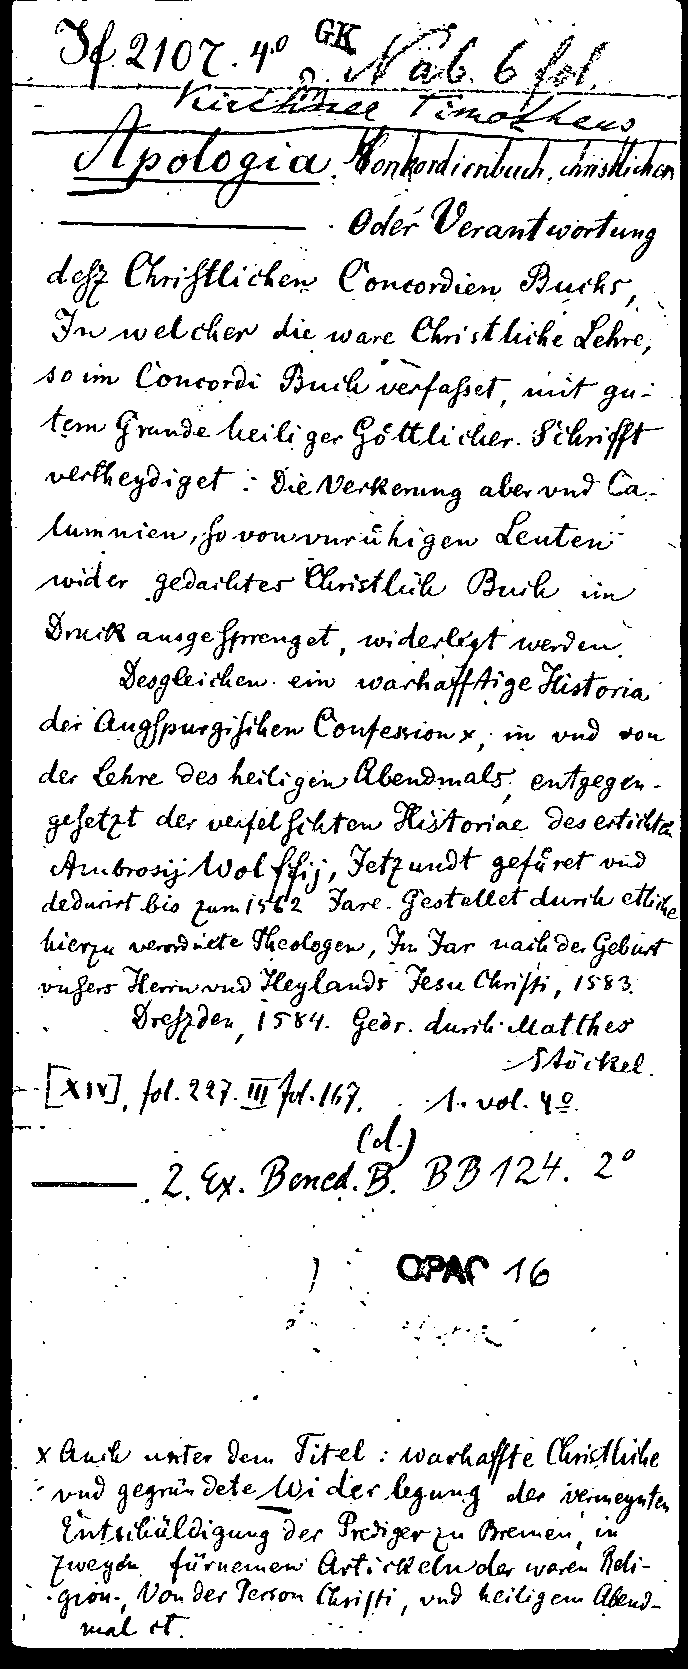 If 2107. 4° GK Näb. 6 fol.
Kirchner Timotheus
Apologia. Konkordienbuch, christlichen
Oder Verantwortung
desz Christlichen Concordien Buchs,
In welcher die ware Christliche Lehre,
so im Concordi Buch verfasset, mit gu-
tem Grunde heiliger Göttlicher Schrifft
vertheydiget: Die Verkerung aber vnd Ca-
lumnien, so von vnrühigen Leuten
wider gedachtes Christlich Buch im
Druck ausgesprenget, widerlegt werden.
Desgleichen ein warhafftige Historia
der Augspurgischen Confession x, in vnd von
der Lehre des heiligen Abendmals, entgegen-
gesetzt der verfelschten Historiae des ertichten
Ambrosij Wolffij, Jetzundt gefüret vnd
deducirt bis zum 1562 Jare. Gestellet durch etliche
hierzu verordnete Theologen, Im Jar nach der Geburt
vnsers Herrn vnd Heylands Jesu Christi, 1583.
Dreszden, 1584. Gedr. durch Matthes
Stöckel.
[XIV], fol. 227. III fol. 167. 1. vol. 4°.
(d.)
2. Ex. Bened. B. BB 124. 2°
OPAC 16
x Auch unter dem Titel: warhaffte Christliche
vnd gegründete Widerlegung der vermeynten
Entschüldigung der Prediger zu Bremen, in
zweyen fürnemen Artickeln der waren Reli-
gion, Von der Person Christi, vnd heiligem Abend-
mal et.